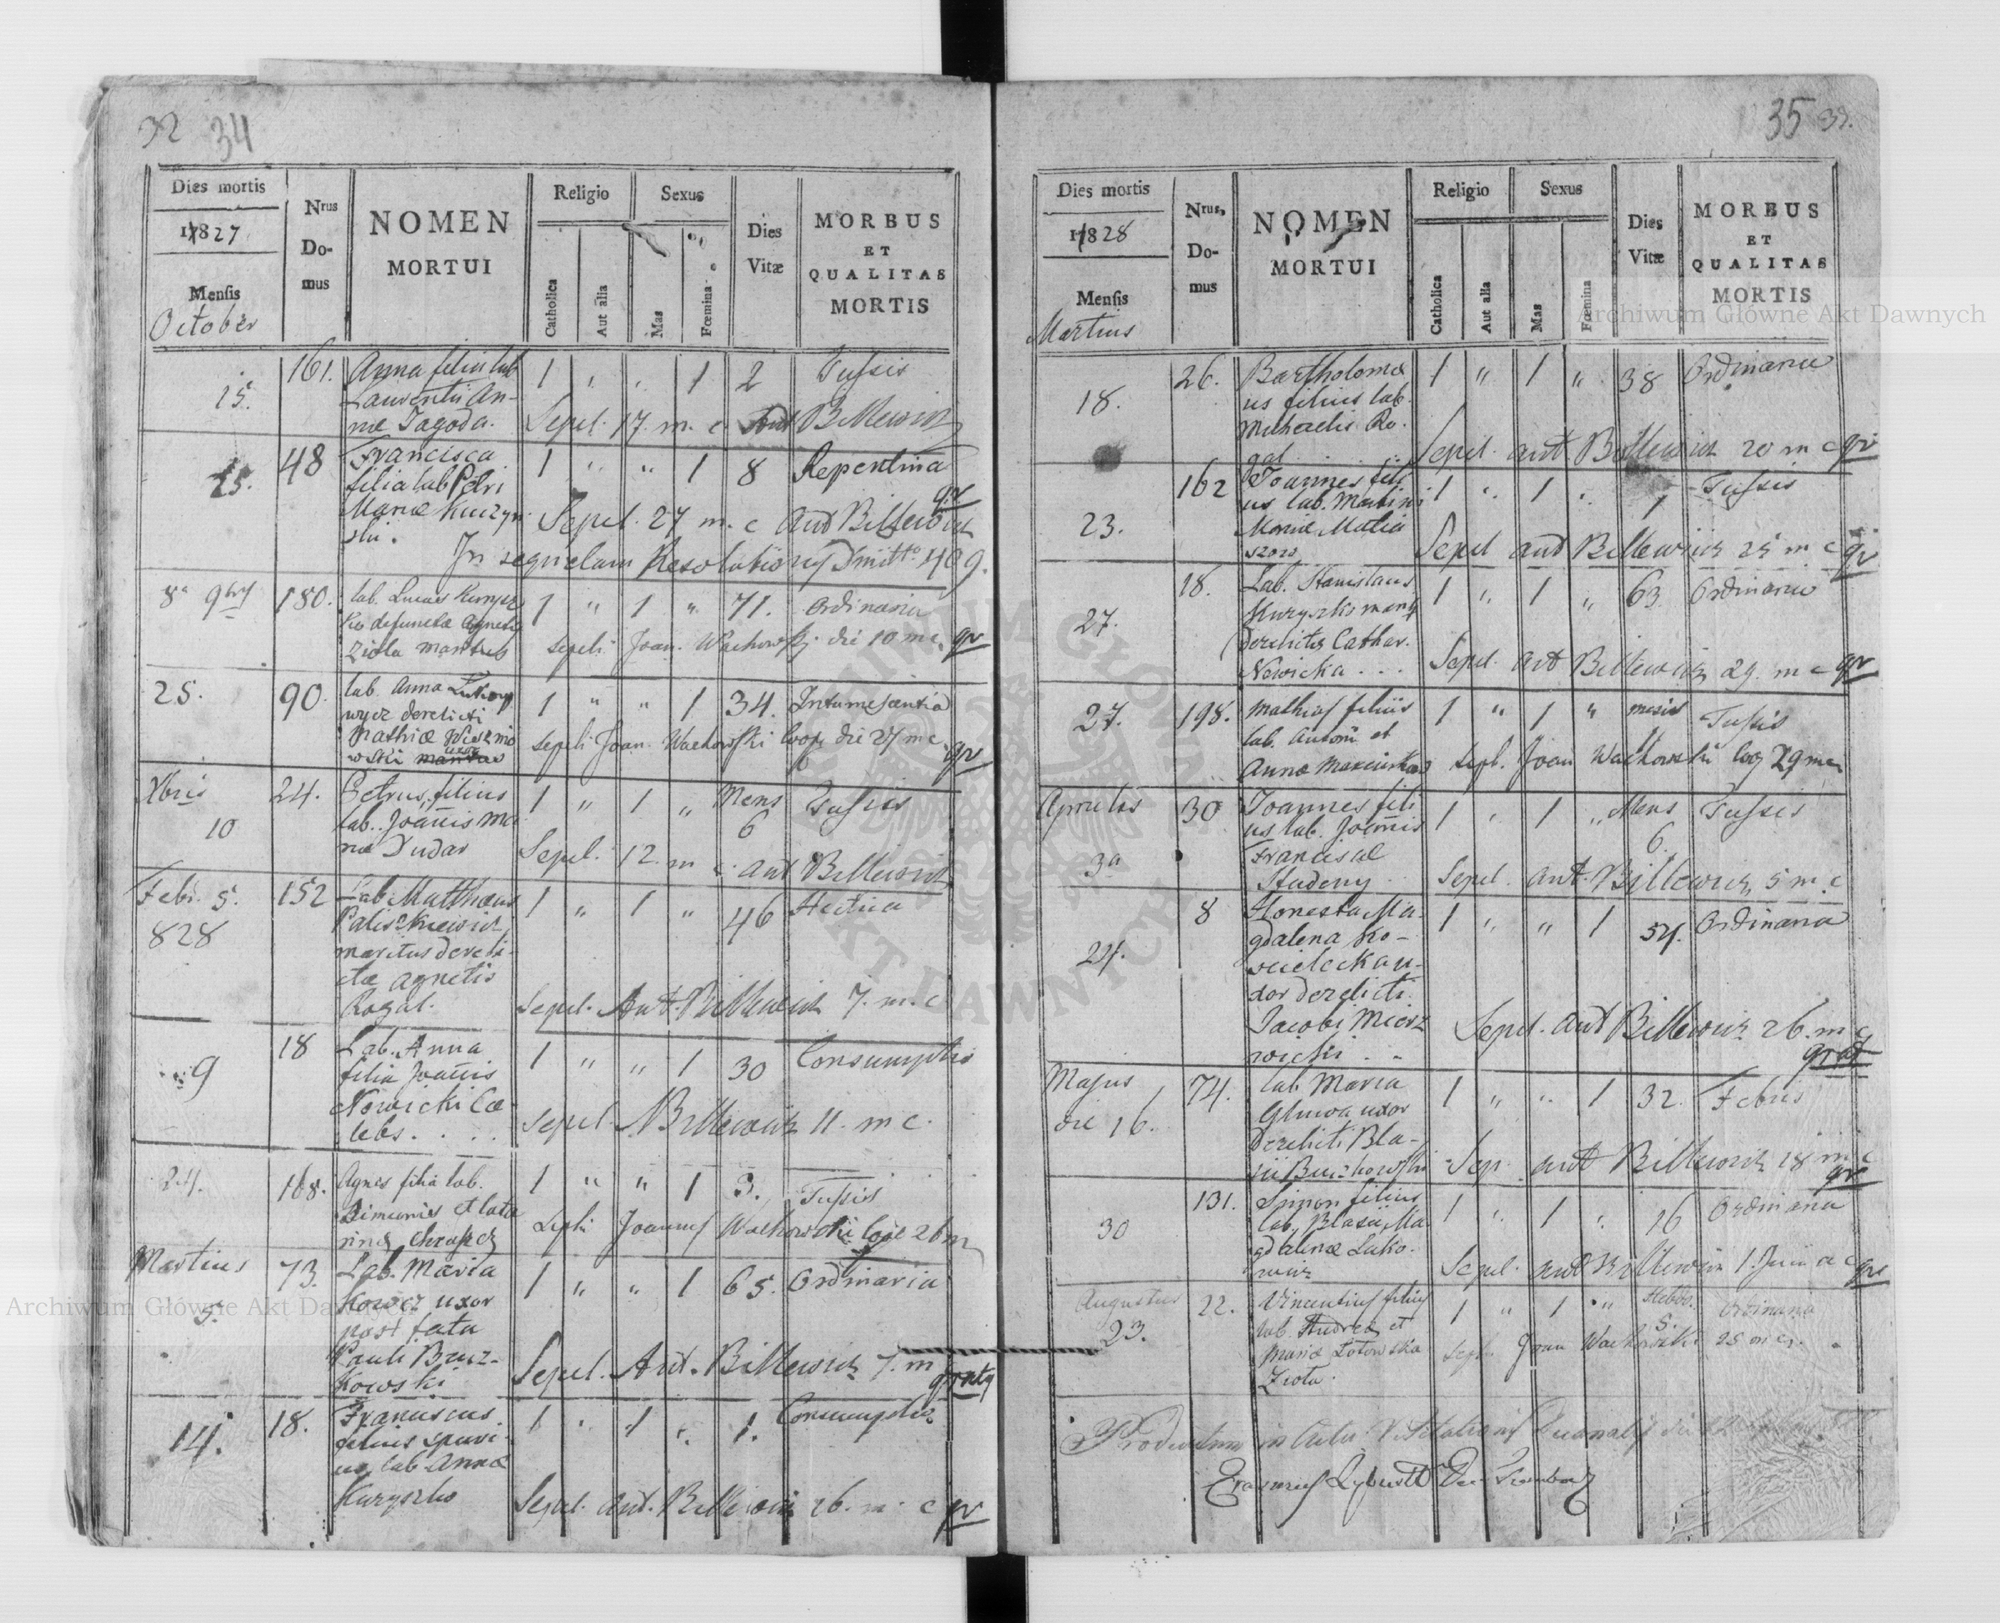 32 34
Dies mortis
1827
Mensis
October
Nrus
Do-
mus
NOMEN
MORTUI
Religio
Catholica
Aut alia
Sexus
Mas
Fœmina
Dies
Vitæ
MORBUS
ET
QUALITAS
MORTIS
15. 161. Anna filia lab 1 " " 1 2 Tussis
Laurentii An-
næ Jagoda. Sepel. 17. m. c. Ant Billewicz
25. 48 Francisca 1 " " 1 8 Repentina
filia lab Petri
Mariæ Kuczyn Sepel. 27 m. c Ant Billewicz
ski.
In sequelam Resolutionis 409.
8a 9bris 180. lab. Lucas 1 " 1 " 71. Ordinaria
defunctæ Agnetis
Ziola maritus sepeli Joan. Wachowski die 10 m c. gr
25. 90. lab. Anna 1 " " 1 34. Intumescentia
wycz derelicti
Mathiæ sepeli Joan. Wachowski coop die 27 m c gr
wski uxor
Xbris 24. Petrus filius 1 " 1 " Mens Tussis
10 lab. Joannis Ma 6
riæ Dudar Sepel. 12. m c. ant Billewicz
Febr. 5. 152 Lab. Matthæus 1 " 1 " 46 Hectica
828 Paliszkiewicz
maritus dereli-
ctæ Agnetis
Rogal. Sepel. Ant. Billewicz 7. m. c
9 18 Lab. Anna 1 " " 1 30 Consumptio
filia Joannis
Nowicki Cæ-
lebs. . . . Sepel. A Billewicz 11. m c.
24. 168. Agnes filia lab. 1 " " 1 3. Tussis
Simeonis et Cata
rinæ Sepeli Joannes Wachowski coop 26 m
Martius 73. Lab. Maria 1 " " 1 65. Ordinaria
5. Kowcz uxor
post fata
Pauli Bucz-
kowski Sepel. Ant. Billewicz 7. m gratis
14. 18. Franciscus 1 " 1 " 1. Consumptio
filius spuri-
us lab Annæ
Kuryszko Sepel. Ant. Billewicz 26. m. c gr
35
Dies mortis
1828
Mensis
Martius
Nrus.
Do-
mus
NOMEN
MORTUI
Religio
Catholica
Aut alia
Sexus
Mas
Fœmina
Dies
Vitæ
MORBUS
ET
QUALITAS
MORTIS
18. 26. Bartholomæ 1 " 1 " 38 Ordinaria
us filius lab.
Michaelis Ro-
gal . . . Sepel. ant Billewicz 20 m c gr
23. 162 Joannes fili 1 " 1 " 1 Tussis
us lab. Martini
Mariæ Matia
szow Sepel ant Billewicz 25 m c gr
27. 18. Lab. Stanislaus 1 " 1 " 63. Ordinaria
Kuryszko marit
derelictæ Cathar.
Nowicka . . . Sepel. Ant Billewicz 29. m c gr
27. 198. Mathias filius 1 " 1 " mesis Tussis
lab. Antoni et
Annæ sepl. Joan Wachowski coop 29 m c
Aprilis 30 Joannes fili 1 " 1 " Mens Tussis
3a us lab. Joannis 6.
Franciscæ
Studeny Sepel. ant. Billewicz, 5 m. c
24. 8 Honesta Ma- 1 " " 1 54. Ordinaria
gdalena Ko-
scielecka u-
xor derelicti
Jacobi Mierz
wicki . . Sepel. Ant Billewicz 26. m c
grat
Majus 74. lab Maria 1 " " 1 32. Febris
die 16. Gluwa uxor
derelicti Bla-
sii Buczkowski Sep. ant Billewicz 18 m c
gr
30 131. Simon filius 1 " 1 " 16 Ordinaria
lab. Blasii Ma
gdalenæ Luko-
wicz Sepel. ant Billewicz 1. Junii a c gr
Augustus 22. Vincentius filius 1 " 1 " Hebdo. Ordinaria
23. lab. Andreæ et 5.
Mariæ Łotowska Sepl. Joan Wachowski 25 m c.
Ziola.
Productum in Actu Visitationis Decanalis die
Archiwum Główne Akt Dawnych
Archiwum Główne Akt Dawnych
ARCHIWUM GŁÓWNE AKT DAWNYCH